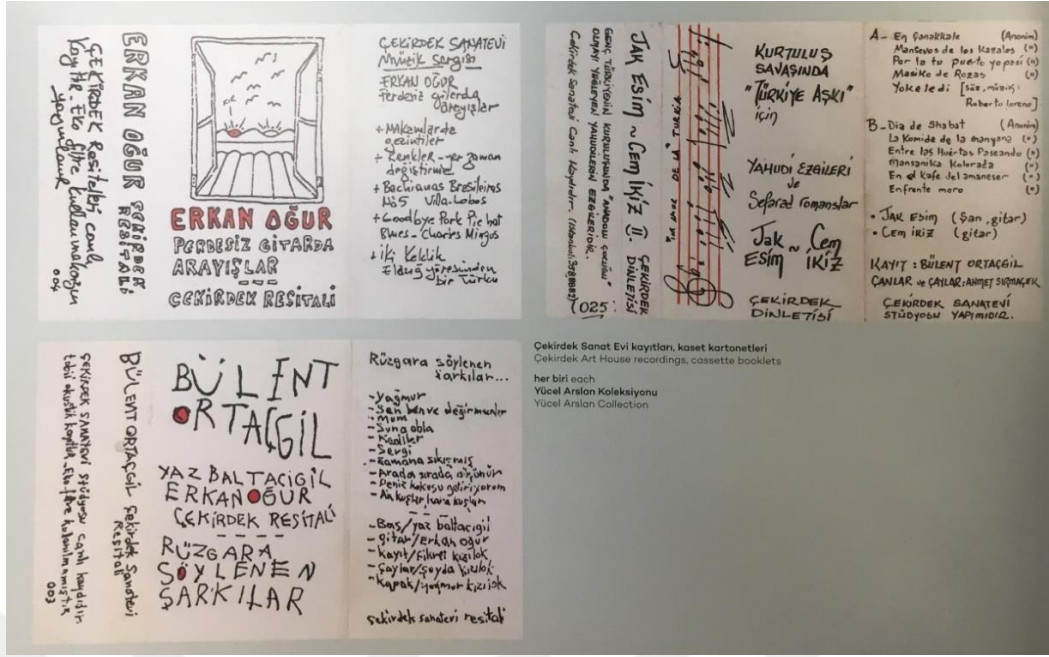 ÇEKİRDEK Resitalleri canlı
kayıttır. Eko filtre kullanılmaksızın
yayınlanır
004
ERKAN OĞUR ÇEKİRDEK
RESİTALİ
ERKAN OĞUR
PERDESİZ GİTARDA
ARAYIŞLAR
ÇEKİRDEK RESİTALİ
ÇEKİRDEK SANATEVİ
Müzik Sergisi
ERKAN OĞUR
Perdesiz gitarda
arayışlar
+ Makamlarda
gezintiler
+ Renkler - yer zaman
değiştirme
+ Bachianas Brasileiras
No5 Villa-Lobos
+ Goodbye Pork Pie hat
Blues - Charles Mingus
+ iki Keklik
Elazığ yöresinden
bir Türkü
GENÇ TÜRKİYENİN KURULUŞUNDA "ANADOLU ÇOCUĞU"
OLMAYI YEĞLEYEN YAHUDİLERİN EZGİLERİDİR.
Çekirdek Sanatevi Canlı Kaydıdır.
JAK ESİM ~ CEM İKİZ II. ÇEKİRDEK
DİNLETİSİ
025
KURTULUŞ
SAVAŞINDA
"TÜRKİYE AŞKI"
için
YAHUDİ EZGİLERİ
ve
Sefarad romanslar
Jak ~ Cem
Esim İKİZ
ÇEKİRDEK
DİNLETİSİ
A - En Çanakkale (Anonim)
Mansevos de los Kazales (")
Por la tu puerta yo pasi (")
Masiko de Rozas (")
Yo keledi [söz, müzik:
Roberto Loreno]
B - Dia de Shabat (Anonim)
La Komida de la manyana (")
Entre las Huertas Paseando (")
Mansanika Kolorada (")
En el kafe del amaneser (")
Enfrente moro (")
• JAK Esim (Şan, gitar)
• Cem iKiZ (gitar)
KAYIT : BÜLENT ORTAÇGİL
CANLAR ve ÇAYLAR : AHMET SIRMAÇEK
ÇEKİRDEK SANATEVİ
STÜDYOSU YAPIMIDIR.
Çekirdek Sanat Evi kayıtları, kaset kartonetleri
Çekirdek Art House recordings, cassette booklets
her biri each
Yücel Arslan Koleksiyonu
Yücel Arslan Collection
ÇEKİRDEK SANATEVİ stüdyosu canlı kaydıdır
tabii akustik kayıttır. Eko-filtre kullanılmamıştır
003
BÜLENT ORTAÇGİL Çekirdek Sanatevi
Resitali
BÜLENT
ORTAÇGİL
YAZ BALTACIGİL
ERKAN OĞUR
ÇEKİRDEK RESİTALİ
RÜZGARA
SÖYLENEN
ŞARKILAR
Rüzgara söylenen
şarkılar...
- Yağmur
- Sen ben ve değirmenler
- Mum
- Suna abla
- Kediler
- Sergi
- Zamana sıkışmış
- Arada sırada düşünür
- Deniz kokusu getiriyorum
- Ah kuşlar kara kuşlar
- Bas/yaz baltacıgil
- gitar/Erkan oğur
- Kayıt/Fikret kızılok
- Çaylar/Şeyda kızılok
- Kapak/yağmur kızılok
çekirdek sanatevi resitali